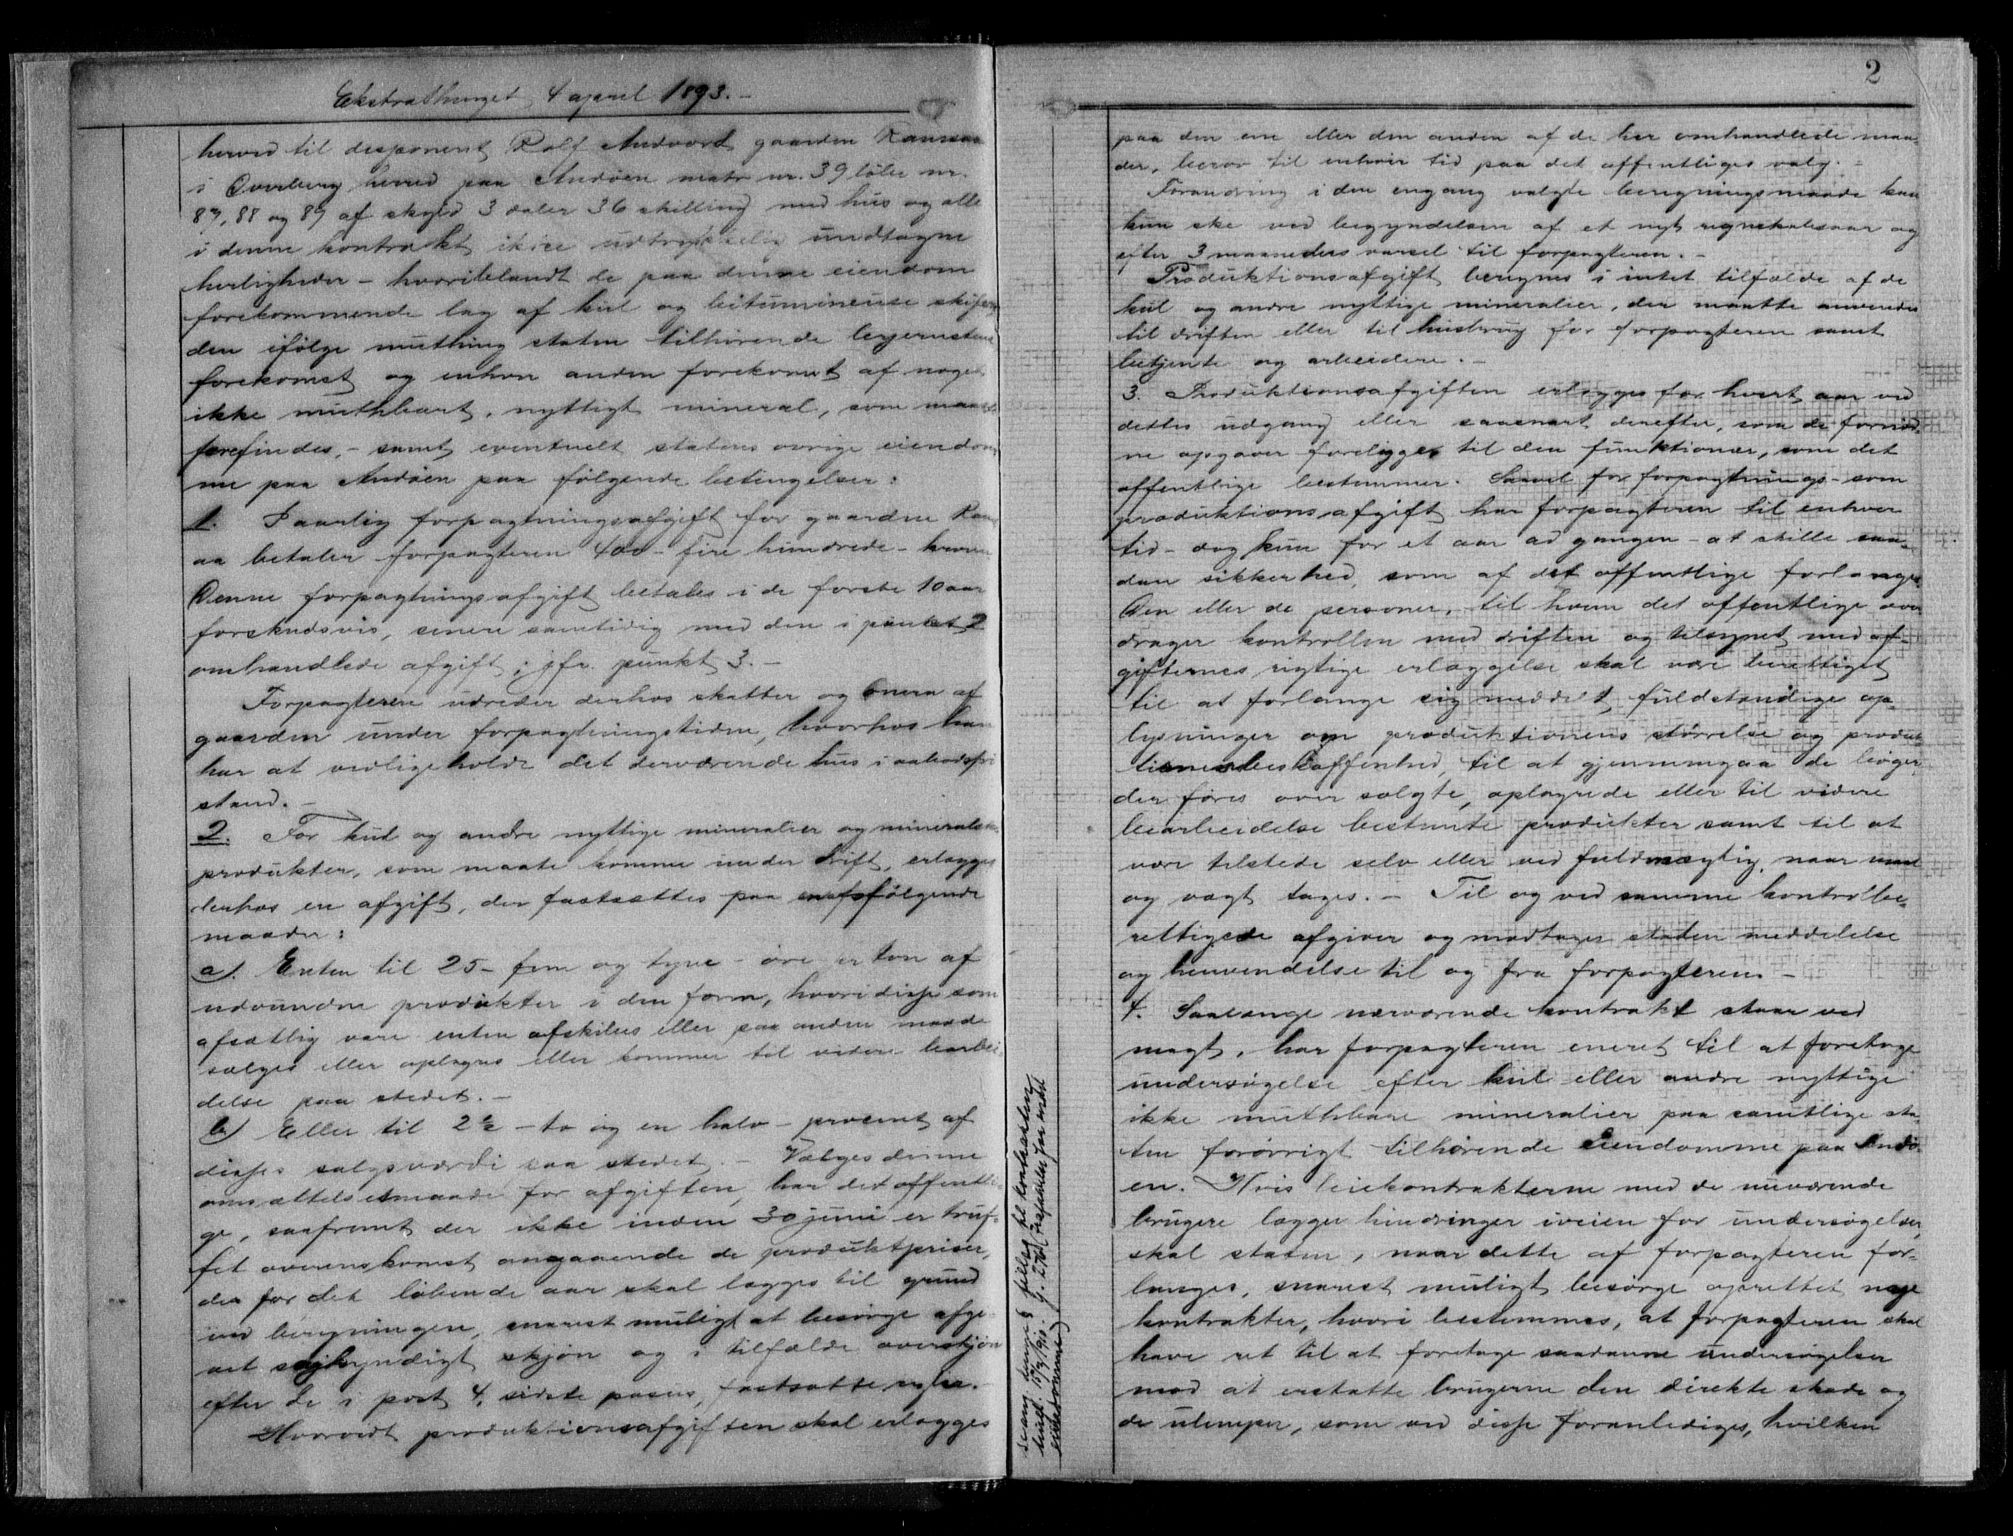 Ekstrathinget 4 april 1893.-
herved til disponent Rolf Andvord gaarden Ramsaa
i Överberg herred paa Andöen matr nr. 39 löbe nr.
87, 88 og 89 af skyld 3 daler 36 skilling med hus og alle
i denne kontrakt ikke udtrykkelig undtagne
herligheder - hvoriblandt de paa denne eiendom
forekommende lag af kul og bituminöuse skifere
den ifölge muthing staten tilhörende lerjernstens
forekomst og enhver anden forekomst af noget
ikke muthbart, nyttigt mineral, som maatte
forefindes, - samt eventuelt statens övrige eiendom
me paa Andöen paa fölgende betingelser:
1. I aarlig forpagtningsafgift for gaarden Ram
aa betaler forpagteren 400 - fire hundrede - kroner
Denne forpagtningsafgift betales i de förste 10 aar
forskudsvis, senere samtidig med den i punkt 2
omhandlede afgift; jfr. punkt 3. -
Forpagteren udreder derhos skatter og onera af
gaarden under forpagtningstiden, hvorhos han
har at vedligeholde det derværende hus i aabodsfri
stand. -
2. For kul og andre nyttige mineralier og mineralsk
produkter, som maate komme under drift, erlægges
derhos en afgift, der fastsættes paa fölgende
maade:
a). Enten til 25 - fem og tyve - öre pr ton af
udvundne produkter i den form, hvori disse som
afsætlig vare enten afskibes eller paa anden maade
sælges eller oplagres eller kommer til videre bearbei
delse paa stedet. -
b) Eller til 2½ - to og en halv - procent af
disses salgsværdi paa stedet. - Vælges denne
ansættelsesmaade for afgiften, har det offentli
ge, saafremt der ikke inden 30 juni er truf-
fet overenskomst angaaende de produktpriser,
der for det löbende aar skal lægges til grund
ved beregningen, snarest muligt at besörge afgi
vet sagkyndigt skjön og i tilfælde overskjön
efter de i post 4, sidste passus, fastsatte regler.
Hvorvidt produktionsafgiften skal erlægges
2
paa den ene eller den anden af de her omhandlede maa
der, beror til enhver tid paa det offentliges valg. -
Forandring i den engang valgte beregningsmaade kan
kun ske ved begyndelsen af et nyt regnskabsaar og
efter 3 maaneders varsel til forpagteren. -
Produktionsafgift beregnes i intet tilfælde af de
kul og andre nyttige mineralier, der maatte anvendes
til driften eller til husbrug for forpagteren samt
betjente og arbeidere. -
3. Produktionsafgiften erlægges for hvert aar ved
dettes udgang eller saasnart derefter, som de fornöd-
ne opgaver foreligger til den funktionær, som det
offentlige bestemmer. Saavel for forpagtnings- som
produktionsafgift har forpagteren til enhver
tid - dog kun for et aar ad gangen - at stille saa-
dan sikkerhed, som af det offentlige forlanges
Den eller de personer, til hvem det offentlige over
drager kontrollen med driften og tilsynet med af-
gifternes rigtige erlæggelse skal være berettiget
til at forlange sig meddelt fuldstændige op-
lysninger om produktionens störrelse og produk-
ternes beskaffenhed, til at gjennemgaa de böger,
der föres over solgte, oplagrede eller til videre
bearbeidelse bestemte produkter samt til at
være tilstede selv eller ved fuldmægtig, naar maal
og vægt tages. - Til og ved samme kontrolbe-
rettigede afgiver og modtager staten meddelelse
og henvendelse til og fra forpagteren -
4. Saalænge nærværende kontrakt staar ved
magt, har forpagteren eneret til at foretage
undersögelse efter kul eller andre nyttige
ikke muthbare mineralier paa samtlige sta
ten forövrigt tilhörende eiendomme paa Andö-
en. Hvis leiekontrakterne med de nuværende
brugere lægger hindringer iveien for undersögelser,
skal staten, naar dette af forpagteren for-
langes, snarest muligt besörge oprettet nye
kontrakter, hvori bestemmes, at forpagteren skal
have ret til at foretage saadanne undersögelser
mod at erstatte brugerne den direkte skade og
de ulemper, som ved disse foranlediges, hvilken
tillæg til kontrakten